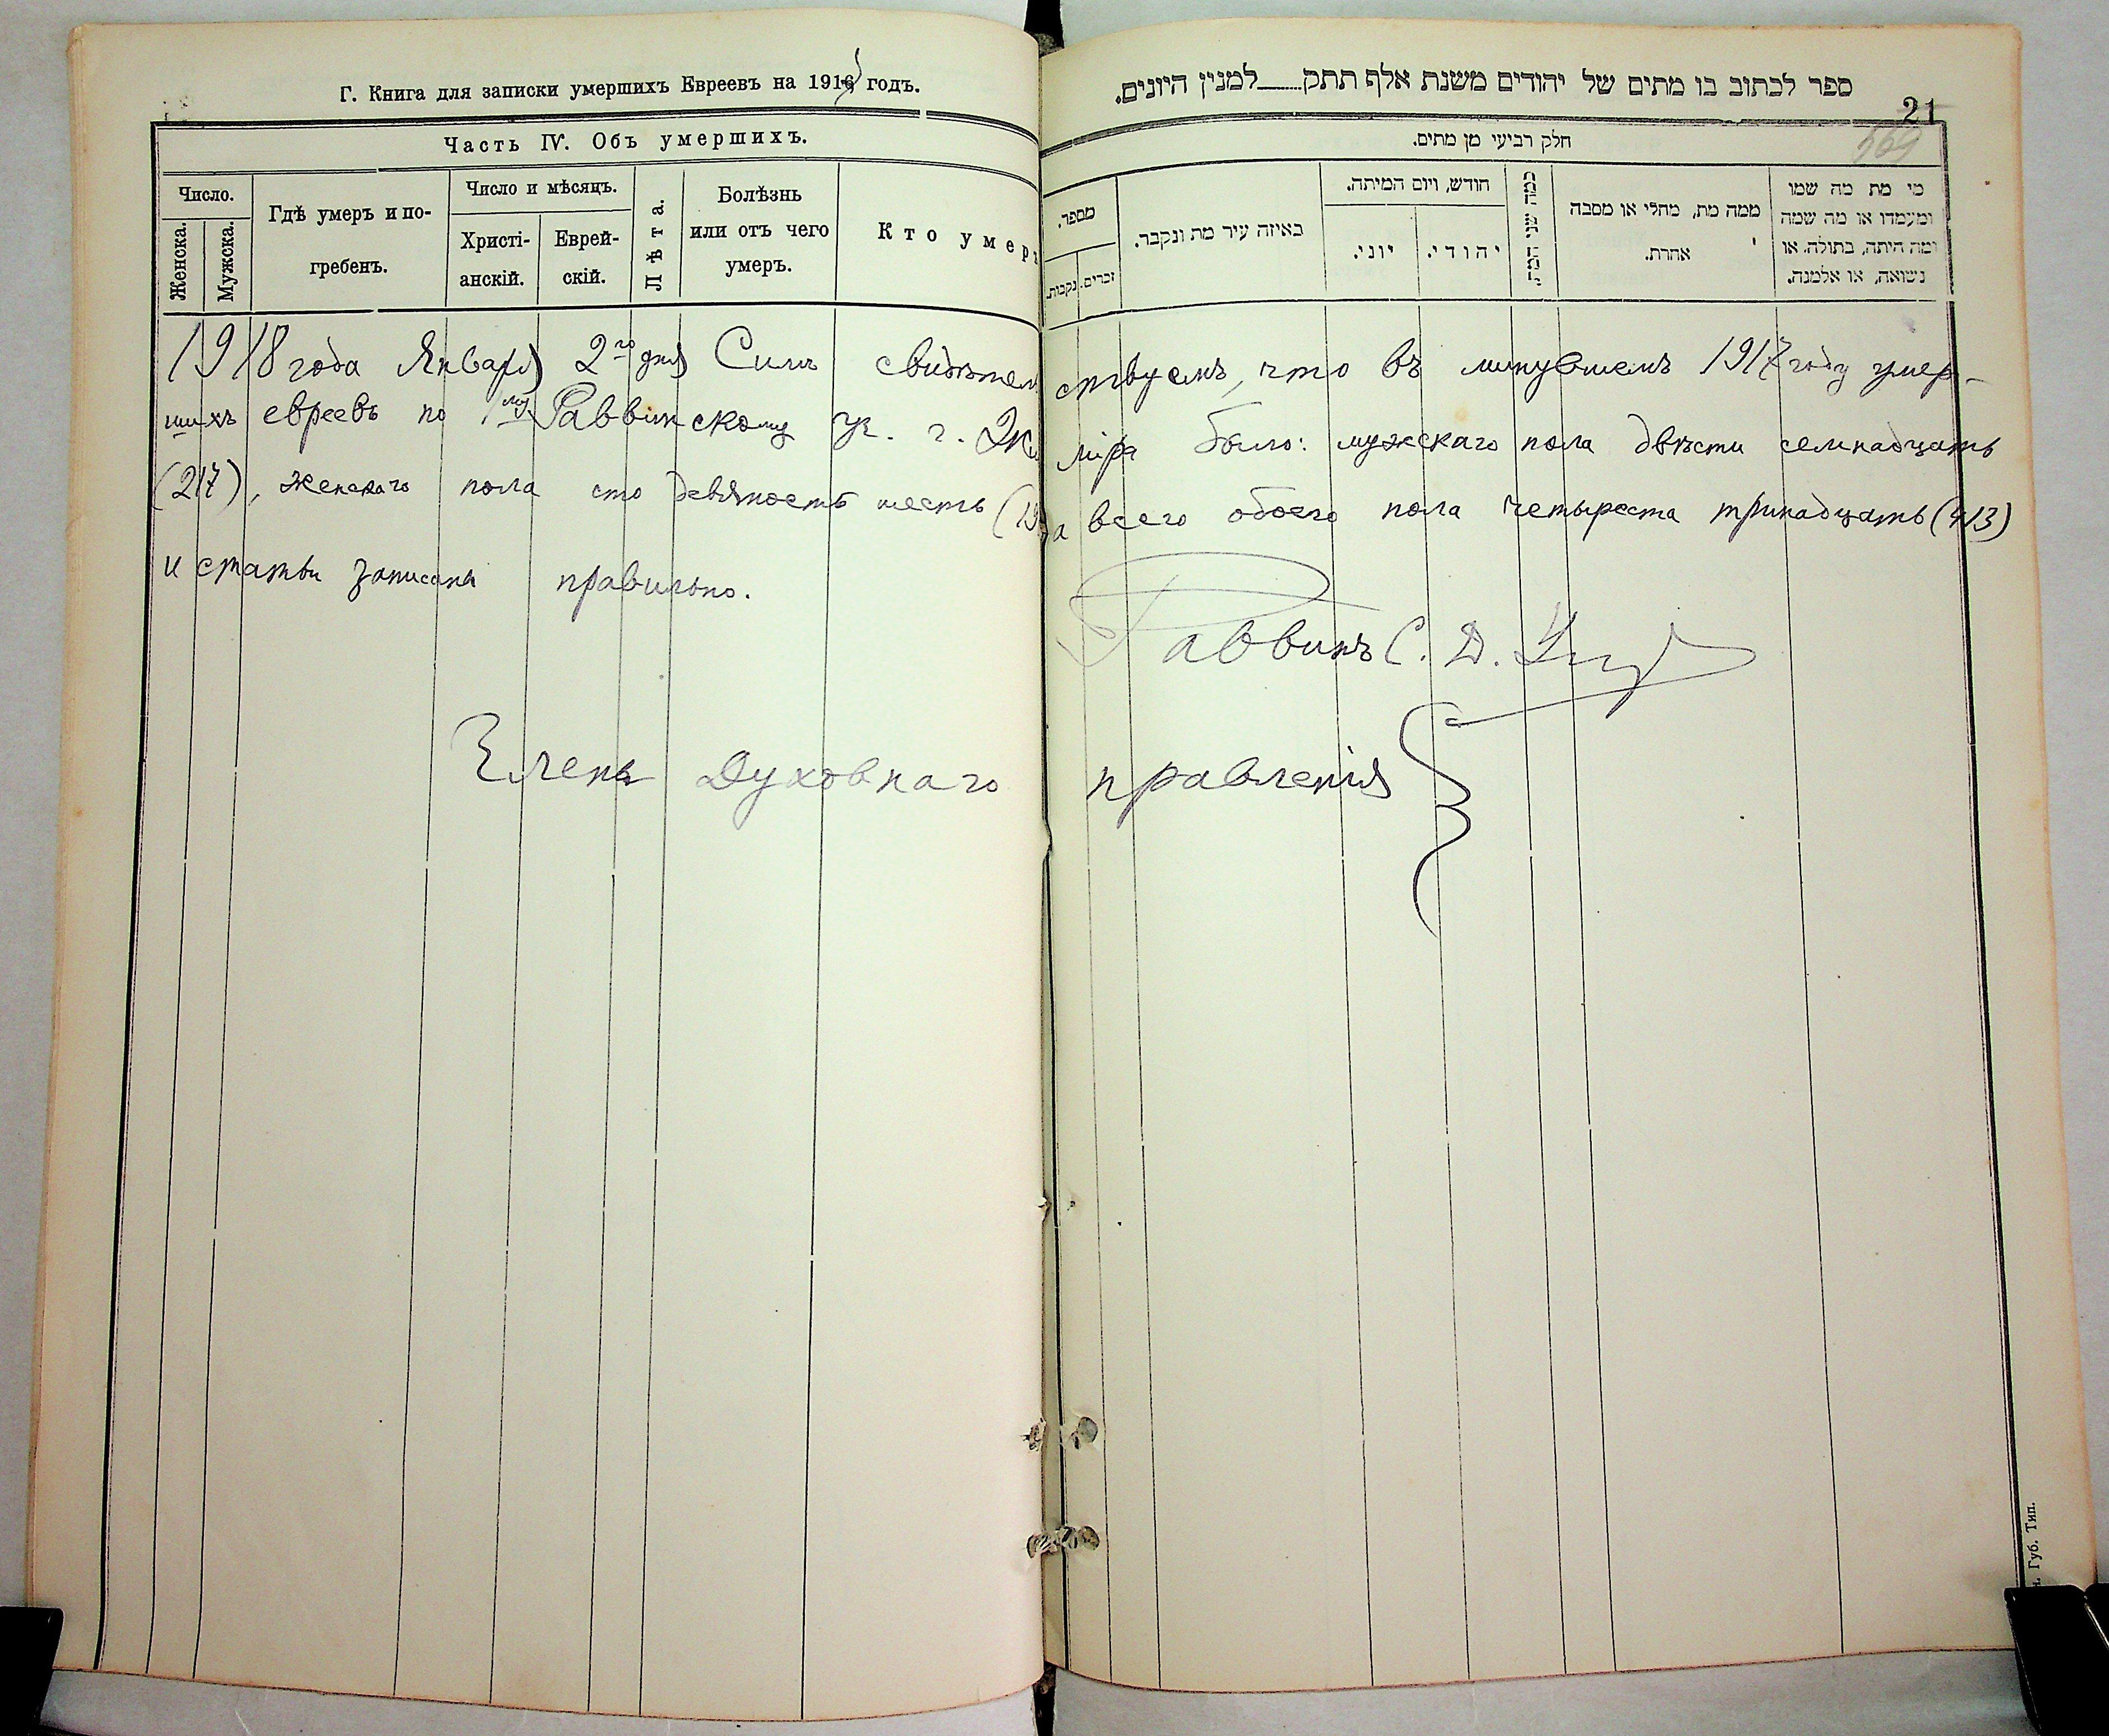 Г. Книга для записки умершихъ Евреевъ на 1917 годъ.
Часть IV. Объ умершихъ.
Число.
Женска.
Мужска.
Гдѣ умеръ и по-
гребенъ.
Число и мѣсяцъ.
Христі-
анскій.
Еврей-
скій.
Лѣта.
Болѣзнь
или отъ чего
умеръ.
Кто умеръ
ספר לכתוב בו מתים של יהודים משנת אלף תתק למנין היונים.
21
569
חלק רביעי מן מתים.
מספר.
זכרים.
נקבות.
באיזה עיר מת ונקבר.
חודש, ויום המיתה.
יוני.
יהודי.
כמה שני המת
ממה מת, מחלי או מסבה
אחרת.
מי מת מה שמו
ומעמדו או מה שמה
ומה היתה, בתולה, או
נשואה, או אלמנה.
1918 года Января 2го дня Симъ свидѣтельствуемъ, что въ минувшемъ 1917 году умер-
шихъ евреевъ по 1му Раввинскому уч. г. Житоміра было: мужскаго пола двѣсти семнадцать
(217), женскаго пола сто девяность шесть (196) а всего обоего пола четыреста тринадцать (413)
и статьи записаны правильно.
Раввинъ С. Д.
Члены Духовнаго правленія
Губ. Тип.